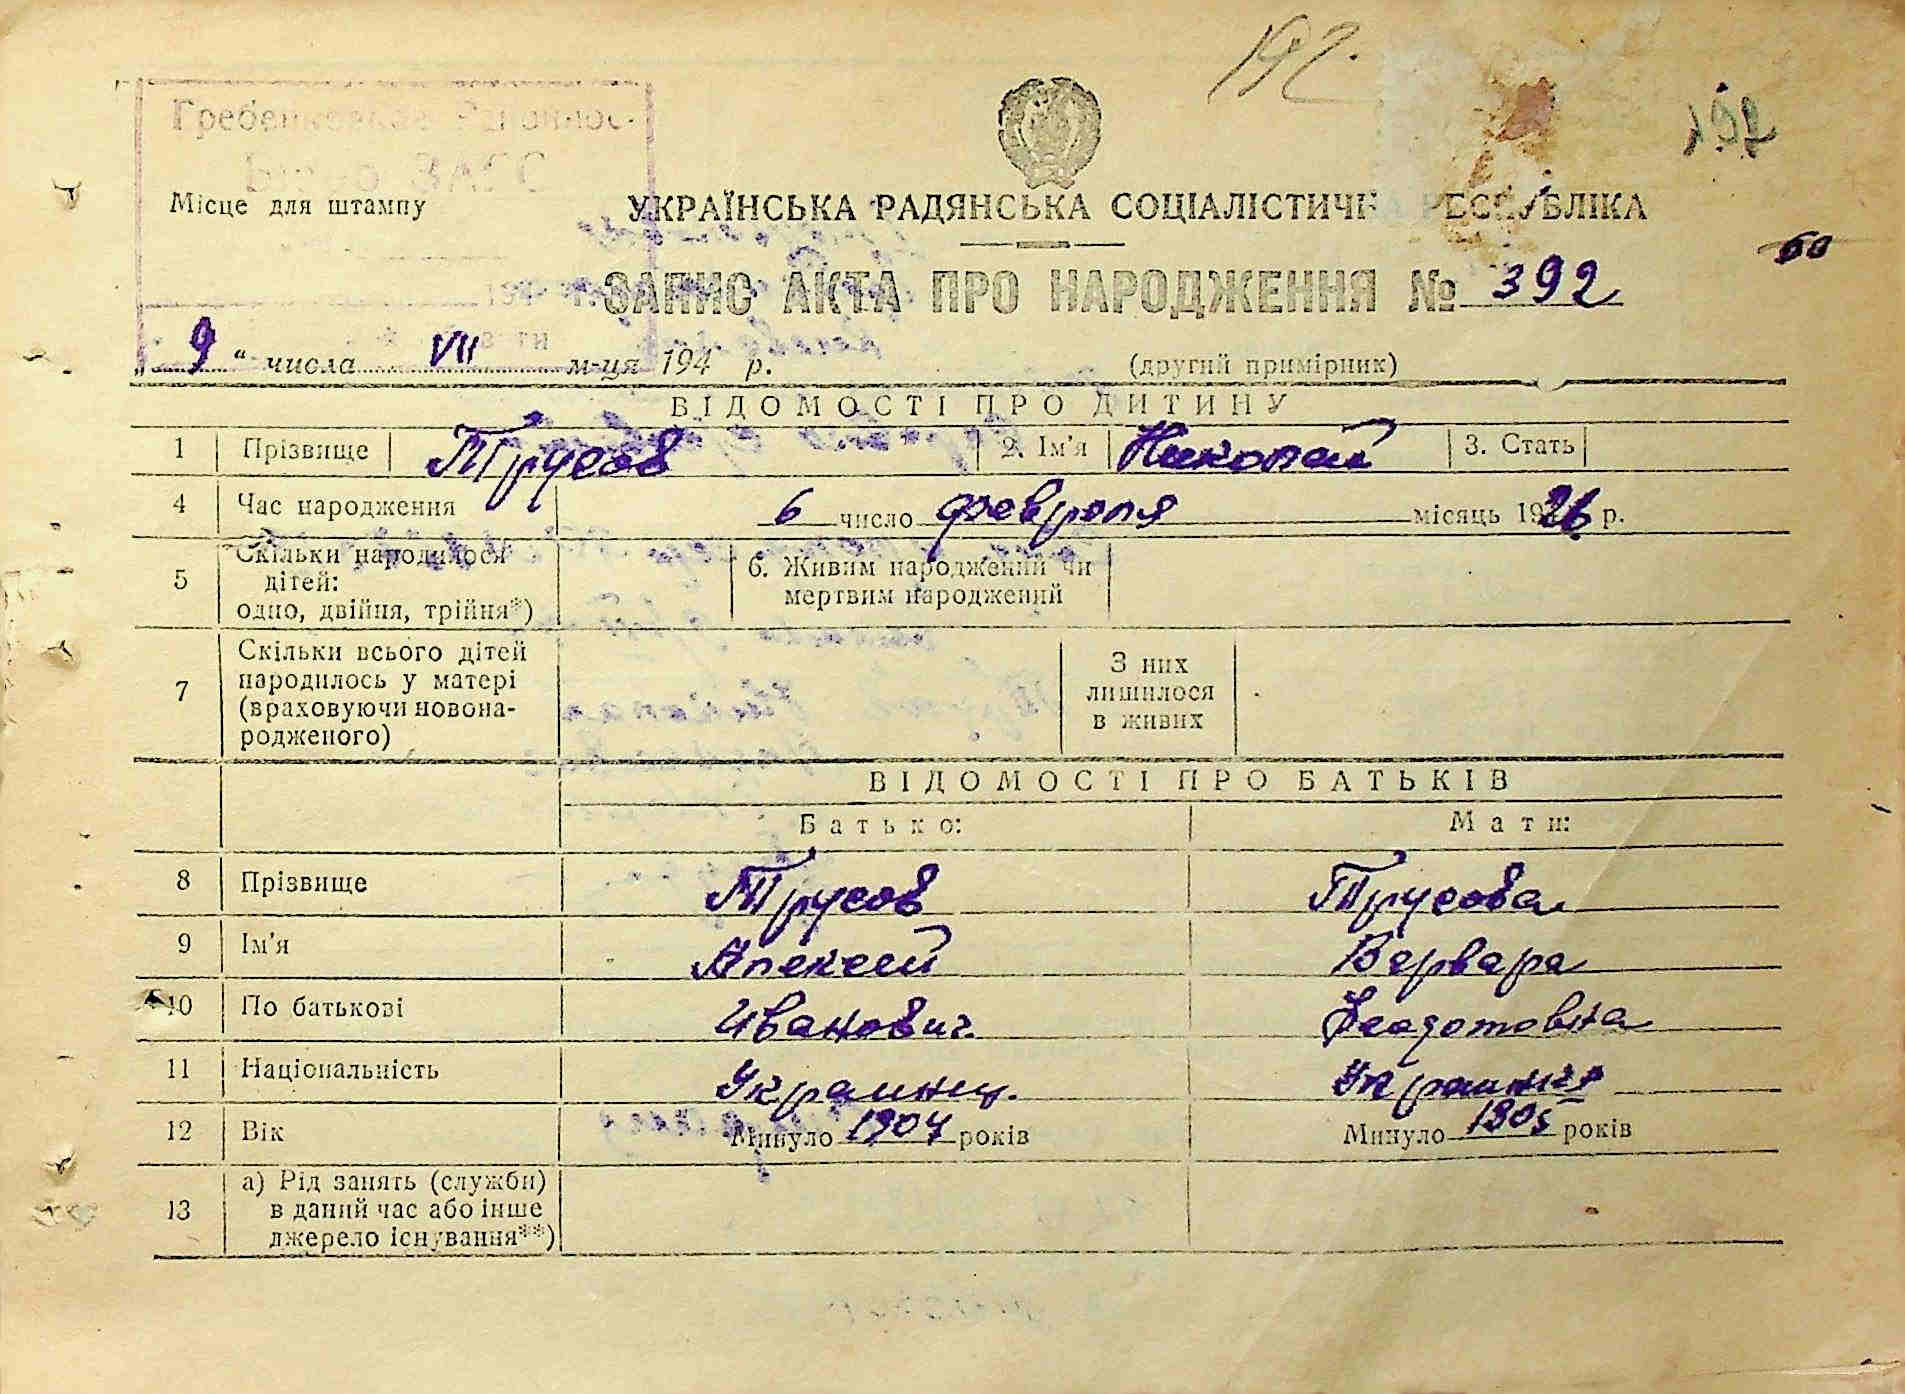 192.
197
Місце для штампу
УКРАЇНСЬКА РАДЯНСЬКА СОЦІАЛІСТИЧНА РЕСПУБЛІКА
60
ЗАПИС АКТА ПРО НАРОДЖЕННЯ № 392
„ 9 “ числа VII м-ця 194 р. (другий примірник)
ВІДОМОСТІ ПРО ДИТИНУ
1 Прізвище Трусов 2. Ім’я Николай 3. Стать
4 Час народження 6 число февроля місяць 1926 р.
5 Скільки народилося дітей: одно, двійня, трійня*) 6. Живим народжений чи мертвим народжений
7 Скільки всього дітей народилось у матері (враховуючи новонародженого) З них лишилося в живих
ВІДОМОСТІ ПРО БАТЬКІВ
Батько: Мати:
8 Прізвище Трусов Трусова
9 Ім’я Алексей Варвара
10 По батькові Иванович Феодотовна
11 Національність Украинец. Украинка
12 Вік Минуло 1904 років Минуло 1905 років
13 а) Рід занять (служби) в даний час або інше джерело існування**)